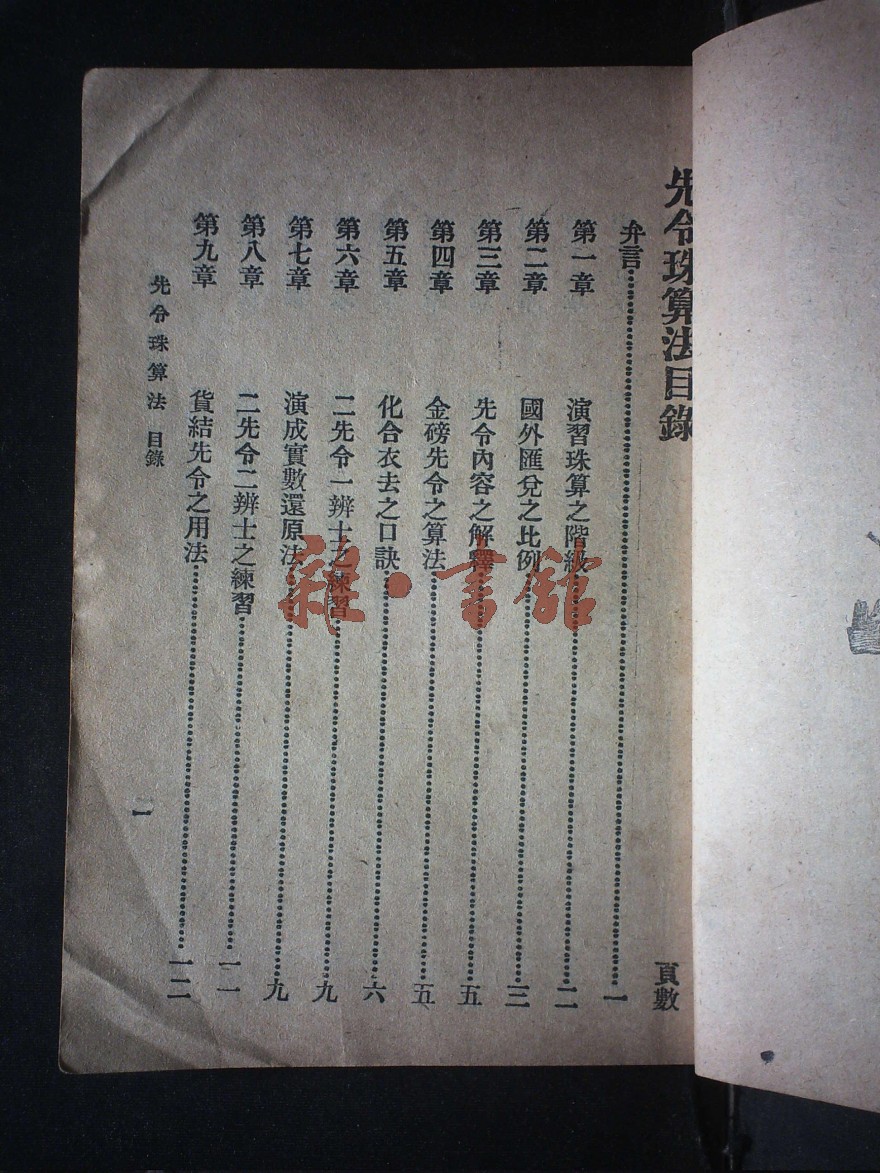 先令珠算法目錄
頁數
弁言……一
第一章 演習珠算之階級……二
第二章 國外匯兌之比例……三
第三章 先令內容之解釋……五
第四章 金磅先令之算法……五
第五章 化合衣去之口訣……六
第六章 二先令一辨士之練習……九
第七章 演成實數還原法……九
第八章 二先令二辨士之練習……一一
第九章 貨結先令之用法……一二
先令珠算法 目錄
一
雜·書館